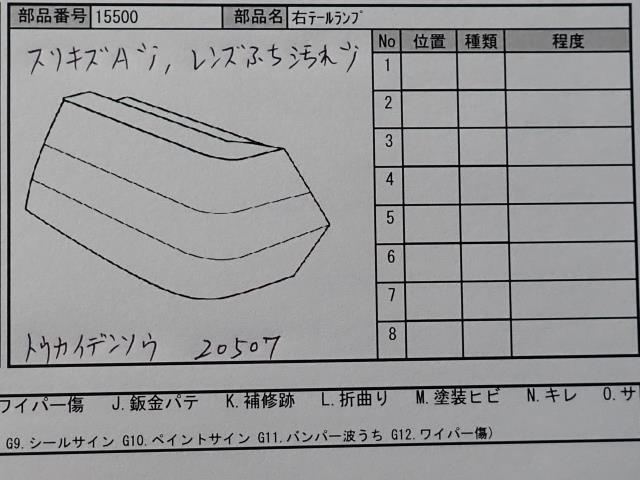 部品番号 15500 部品名 右ﾃｰﾙﾗﾝﾌﾟ
スリキズA, レンズふち汚れ
No 位置 種類 程度
1
2
3
4
5
6
7
8
トウカイデンソウ 20507
ワイパー傷 J.鈑金パテ K.補修跡 L.折曲り M.塗装ヒビ N.キレ O.サ
G9.シールサイン G10.ペイントサイン G11.バンパー波うち G12.ワイパー傷)